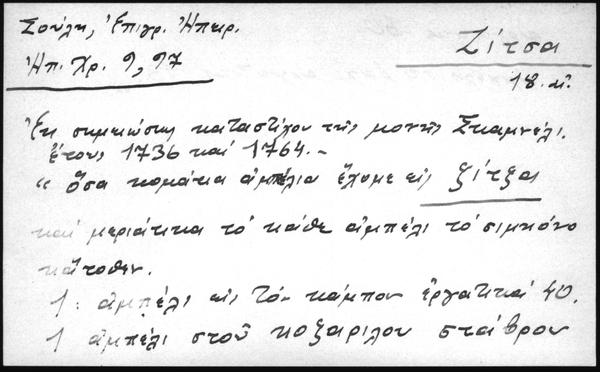 Σούλη, Ἐπιγρ. Ἠπειρ.
Ἠπ. Χρ. 9, 97
Ζίτσα
18. αἰ.
Ἐκ σημειώσεως καταστίχου τῆς μονῆς Σκαμνέλι.
ἔτους 1736 καὶ 1764.-
"ὅσα κομάτια ἀμπέλια ἔχομε εἰς ξίτξα
καὶ μεριάτικα τὸ κάθε ἀμπέλι τὸ σιμιόνο
κάτοθεν.
1: ἀμπέλι εἰς τὸν κάμπον ἐργατικαὶ 40.
1 ἀμπέλι στοῦ κοξαρίλου σταύρον